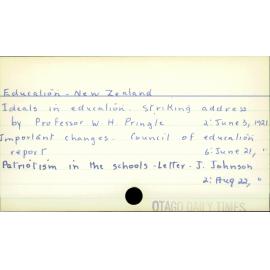 Education - New Zealand
Ideals in education. Striking address
by Professor W. H. Pringle 2: June 3, 1921
Important changes. Council of education
report 6: June 21, "
Patriotism in the schools - Letter - J. Johnson
2: Aug 22, "
OTAGO DAILY TIMES